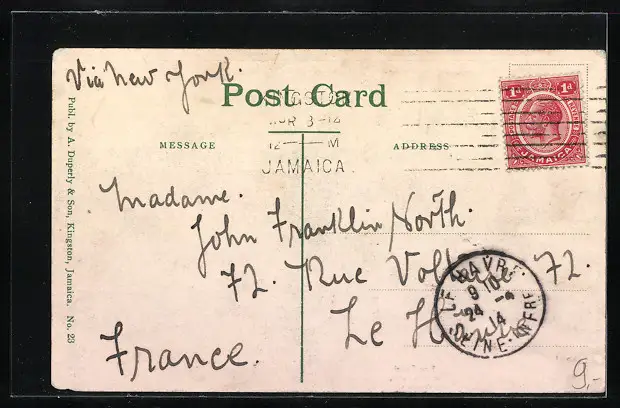 Via New York.
Post Card
KINGSTON
12 — M
JAMAICA
MESSAGE
ADDRESS
1d 1d
JAMAICA
Madame.
John Franklin North.
72. Rue 72.
Le
France.
LE HAVRE
9 10
24 - 4
14
SEINE INFRE
Publ. by A. Duperly & Son, Kingston, Jamaica. No. 23
9,-